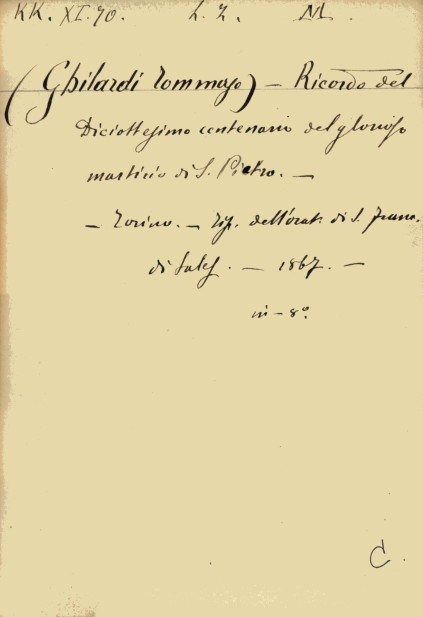 KK. XI. 70. L. Z. M.
(Ghilardi Tommaso) — Ricordo del
Diciottesimo centenario del glorioso
martirio di S. Pietro. —
— Torino. — Tip. dell'orat. di S. Franc.
di Sales. — 1867. —
in-8°.
C.